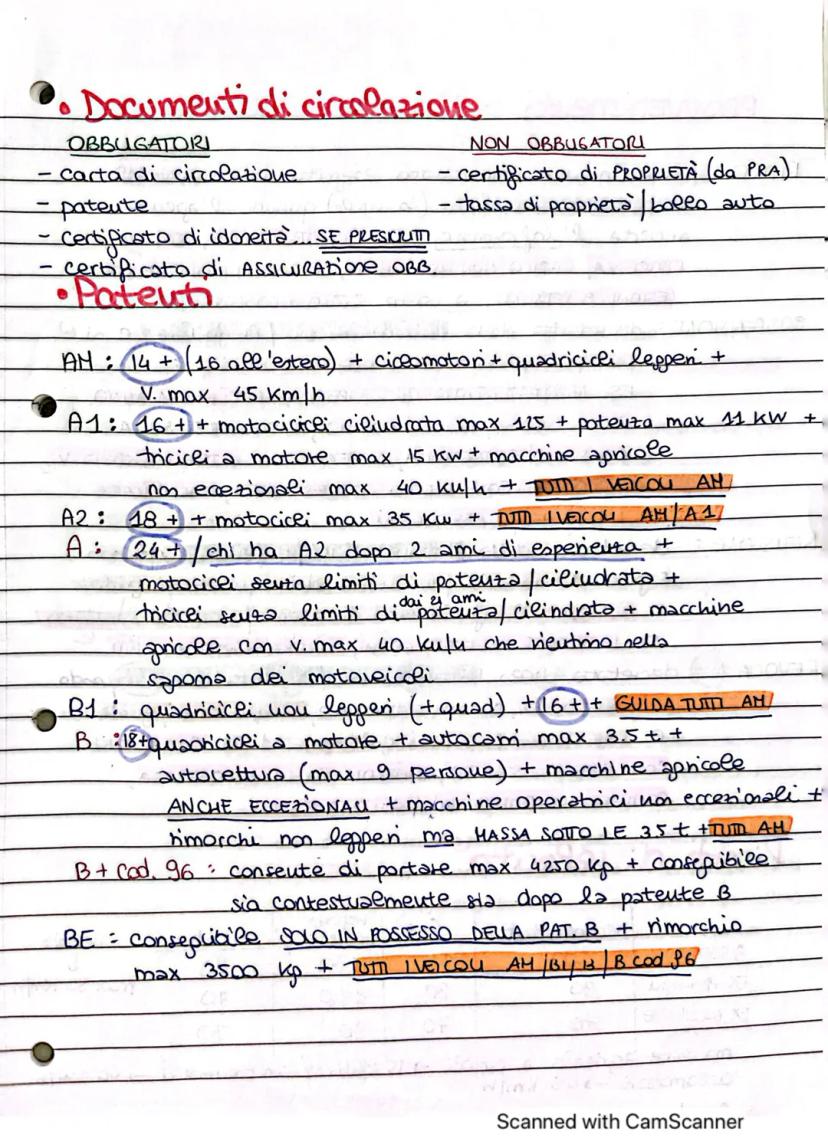 • Documenti di circolazione
OBBLIGATORI NON OBBLIGATORI
- carta di circolazione - certificato di PROPRIETÀ (da PRA)
- patente - tassa di proprietà/bollo auto
- certificato di idoneità SE PRESCRITTI
- certificato di ASSICURAZIONE OBB.
• Patenti
AM: 14+ (16 all'estero) + ciclomotori + quadricicli leggeri +
V. max 45 Km/h
A1: 16+ + motocicli cilindrata max 125 + potenza max 11 KW +
tricicli a motore max 15 KW + macchine agricole
non eccezionali max 40 km/h + TUTTI I VEICOLI AM
A2: 18+ + motocicli max 35 Kw + TUTTI I VEICOLI AM/A1
A: 24+/chi ha A2 dopo 2 anni di esperienza +
motocicli senza limiti di potenza/cilindrata +
dai 21 anni
tricicli senza limiti di potenza/cilindrata + macchine
agricole con v. max 40 km/h che rientrino nella
sagoma dei motoveicoli
B1: quadricicli non leggeri (+ quad) + 16+ + GUIDA TUTTI AM
B: 18+ quadricicli a motore + autocarri max 3.5 t +
autovettura (max 9 persone) + macchine agricole
ANCHE ECCEZIONALI + macchine operatrici non eccezionali +
rimorchi non leggeri ma MASSA SOTTO LE 3.5 t + TUTTI AM
B + cod. 96: consente di portare max 4250 kg + conseguibile
sia contestualmente sia dopo la patente B
BE = conseguibile SOLO IN POSSESSO DELLA PAT. B + rimorchio
max 3500 kg + TUTTI I VEICOLI AM/B1/B/B cod 96
Scanned with CamScanner